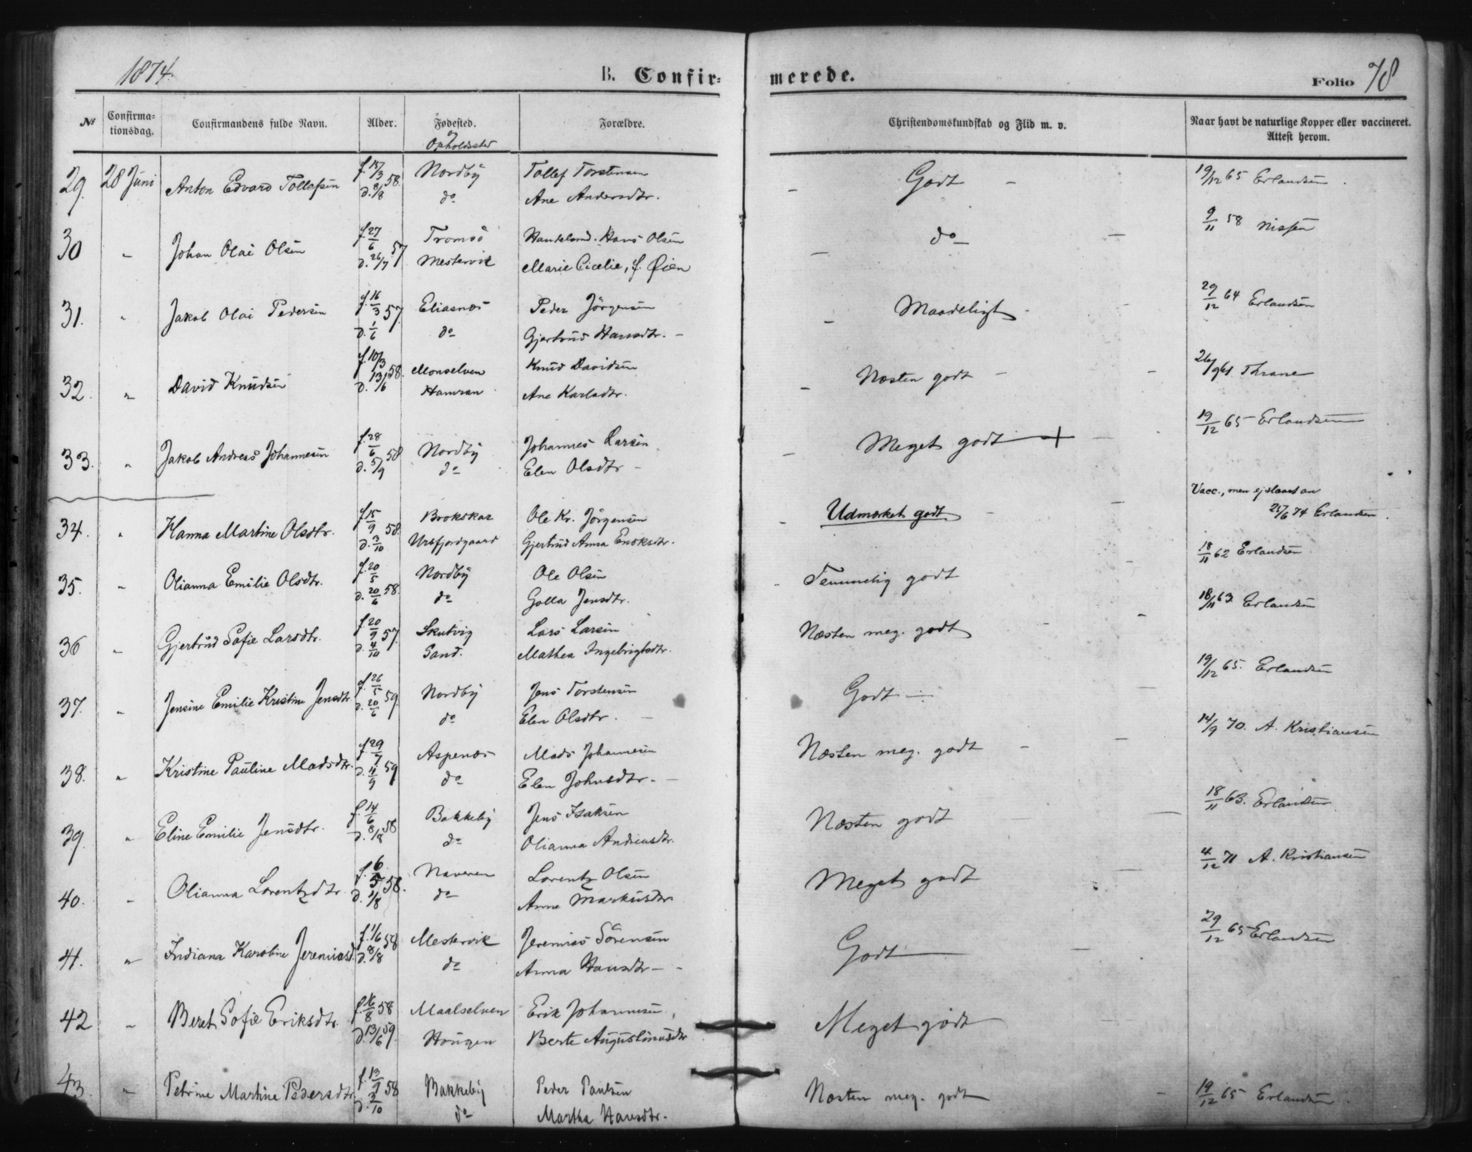 1874.
B. Confir-
merede.
Folio 78
No
Confirma-
tionsdag.
Confirmandens fulde Navn.
Alder.
Fødested.
og
Opholdssted
Forældre.
Christendomskundskab og Flid m. v.
Naar havt de naturlige Kopper eller vaccineret.
Attest herom.
29. 28 Juni Anton Edvard Tollefsen f. 15/3 58 Nordby Tollef Torstensen Godt 19/12 65 Erlandsen.
d. 2/8 do Ane Andersdtr.
30 " Johan Olai Olsen f. 27/6 57 Tromsö Handelsmd. Hans Olsen do 9/11 58 Nissen
d. 26/7 Mestervik Marie Cicelie, f. Øien
31. Jakob Olai Pedersen f. 16/3 57 Eliasnes Peder Jörgensen Maadeligt 29/12 64 Erlandsen
d. 1/6 do Gjertrud Hansdtr.
32. " David Knudsen f. 10/3 58. Monselven Knud Davidsen Næsten godt 26/9 61 Thrane
d. 13/6 Hamran Ane Karlsdtr.
33. " Jakob Andreas Johannesen f. 28/6 58 Nordby Johannes Larsen Meget godt + 19/12 65 Erlandsen
d. 5/9 do Elen Olsdtr
34. " Hanna Martine Olsdtr. f. 15/9 58. Brokskar Ole Kr. Jörgensen Udmærket godt. Vacc., men ej slaaet an
d. 3/10 Ursfjordgaard Gjertrud Anna Enoksdtr. 25/6 74 Erlandsen
35. " Olianna Emilie Olsdtr. f. 20/5 58. Nordby Ole Olsen Temmelig godt 18/11 62 Erlandsen
d. 20/6 do Golla Jensdtr.
36 " Gjertrud Sofie Larsdtr. f. 20/9 57 Skutvig Lars Larsen Næsten meg. godt 18/11 63. Erlandsen
d. 4/10 Sand. Mathea Ingebrigtsdtr.
37. " Jensine Emilie Kristine Jensdtr f. 26/5 59. Nordby Jens Torstensen Godt 19/12 65. Erlandsen
d. 20/6 do Elen Olsdtr.
38. " Kristine Pauline Madsdtr. f. 29/7 59 Aspenes Mads Johannesen Næsten meg. godt 14/9 70. A. Kristiansen
d. 4/9 do Elen Johnsdtr.
39. " Eline Emilie Jensdtr. f. 14/6 58 Bakkeby Jens Isaksen Næsten godt 18/11 63. Erlandsen
d. 8/12 do Olianna Andreasdtr.
40. " Olianna Lorentzdtr. f. 6/5 58. Naveren Lorentz Olsen Meget godt 4/12 71 A. Kristiansen
d. 1/8 do Anne Markusdtr
41. " Indiana Karoline Jeremiasd. f. 1/6 58 Mestervik Jeremias Sörensen Godt 29/12 65 Erlandsen
d. 8/8 do Anna Hansdtr
42 " Beret Sofie Eriksdtr. f. 16/8 58 Maalselven Erik Johannesen Meget godt
d. 13/6 59. Hougen Berte Augustinusdtr
43. " Petrine Martine Pedersdtr. f. 13/9 58 Bakkeby Peder Paulsen Næsten meg. godt 19/12 65 Erlandsen
d. 3/10 do Martha Hansdtr.